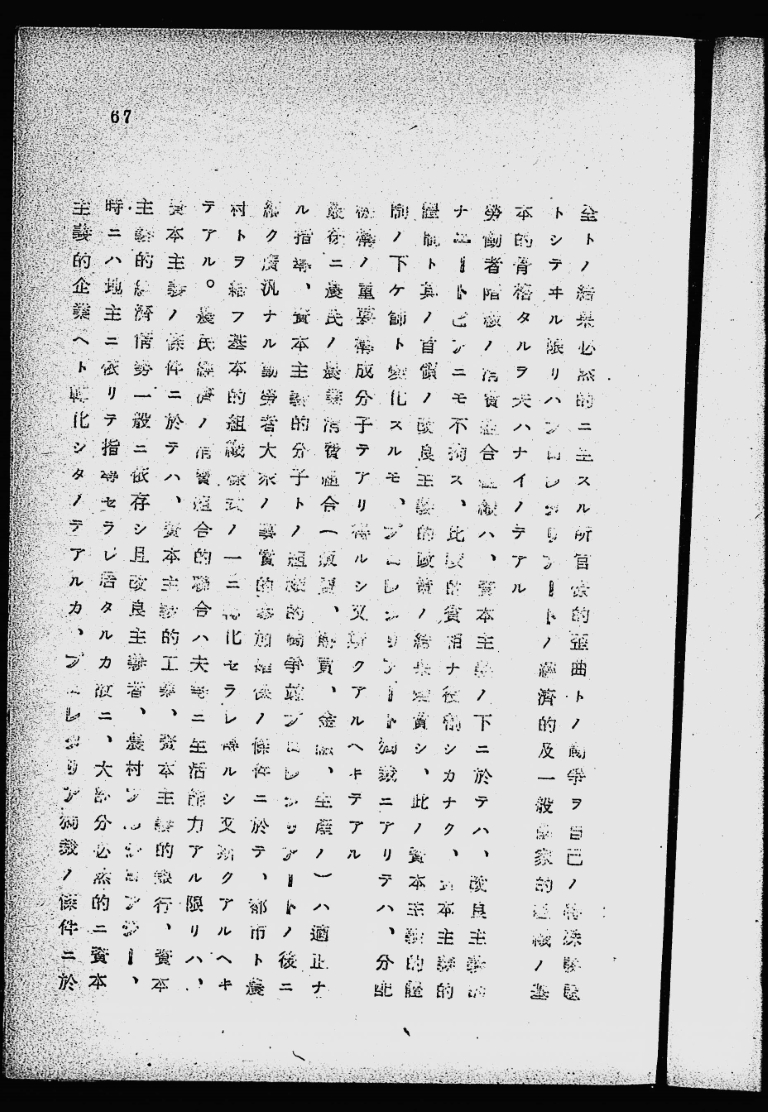 67
全トノ結果必然的ニ生スル所官僚的歪曲トノ闘争ヲ自己ノ特殊
トシテヰル限リハプロレタリアートノ經濟的及一般國家的組織ノ基
本的骨格タルヲ失ハナイノテアル
勞働者階級ノ消費組合組織ハ、資本主義ノ下ニ於テハ、改良主義
ナ ニモ不拘ス、比較的 ナ役割シカナク、資本主義的
ト其ノ首領ノ改良主義的政策ノ結果 シ、此ノ資本主義的
ノ下ケ飾ト變化スルモ、プロレタリアート獨裁ニアリテハ、分配
機構ノ重要構成分子テアリ得ルシ又斯クアルヘキテアル
最後ニ農民ノ農業消費組合(販賣、購買、金融、生産ノ)ハ適正ナ
ル指導、資本主義的分子トノ組織的鬪爭並プロレタリアートノ後ニ
續ク廣汎ナル勤勞者大衆ノ事實的參加確保ノ條件ニ於テ、都市ト農
村トヲ結フ基本的組織樣式ノ一ニ轉化セラレ得ルシ又斯クアルヘキ
テアル。農民經濟ノ消費組合的聯合ハ夫等ニ生活能力アル限リハ、
資本主義ノ條件ニ於テハ、資本主義的工業、資本主義的銀行、資本
主義的經濟情勢一般ニ依存シ且改良主義者、農村ブルジョアジー、
時ニハ地主ニ依リテ指導セラレ居タルカ故ニ、大部分必然的ニ資本
主義的企業ヘト轉化シタノテアルカ、プロレタリア獨裁ノ條件ニ於